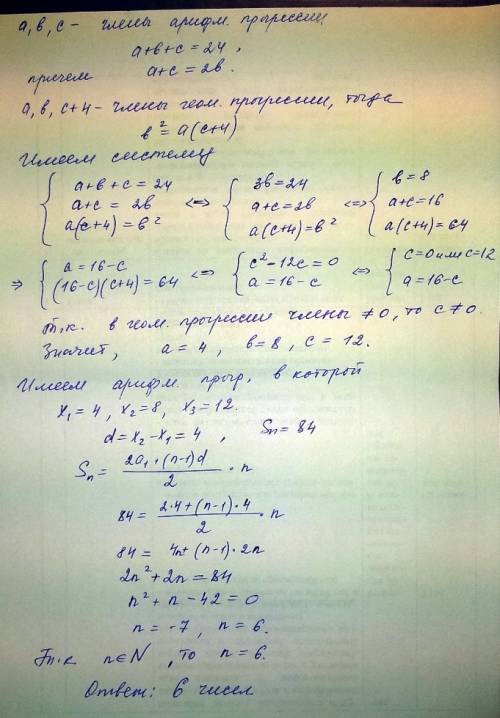 a, в, c – члены арифм. прогрессии
a+в+c = 24,
причем a+c = 2в.
a, в, c+4 – члены геом. прогрессии, тогда
в² = a(c+4)
Имеем систему
{ a+в+c = 24 <=> { 3в = 24 <=> { в = 8
a+c = 2в a+c = 2в a+c = 16
a(c+4) = в² a(c+4) = в² a(c+4) = 64
=> { a = 16-c <=> { c²-12c = 0 <=> { c=0 или c=12
(16-c)(c+4) = 64 a = 16-c a = 16-c
Т.к. в геом. прогрессии члены ≠0, то c≠0.
Значит, a = 4, в = 8, c = 12.
Имеем арифм. прогр., в которой
x₁ = 4, x₂ = 8, x₃ = 12.
d = x₂ - x₁ = 4, Sn = 84
Sn = (2a₁+(n-1)d)/2 · n
84 = (2·4+(n-1)·4)/2 · n
84 = 4n+(n-1)·2n
2n²+2n = 84
n²+n-42 = 0
n = -7, n = 6.
Т.к n∈N, то n = 6.
Ответ: 6 чисел